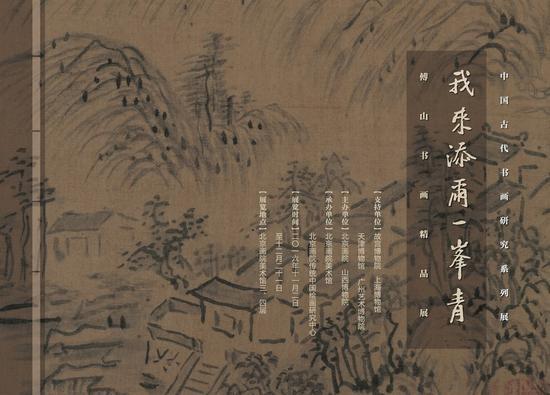 中国古代书画研究系列展
我来添尔一峯青
傅山书画精品展
【支持单位】故宫博物院 上海博物馆
天津博物馆 广州艺术博物院
【主办单位】北京画院 山西博物院
【承办单位】北京画院美术馆
北京画院传统中国绘画研究中心
【展览时间】二〇一六年十一月二日
至十二月二十一日
【展览地点】北京画院美术馆三、四层